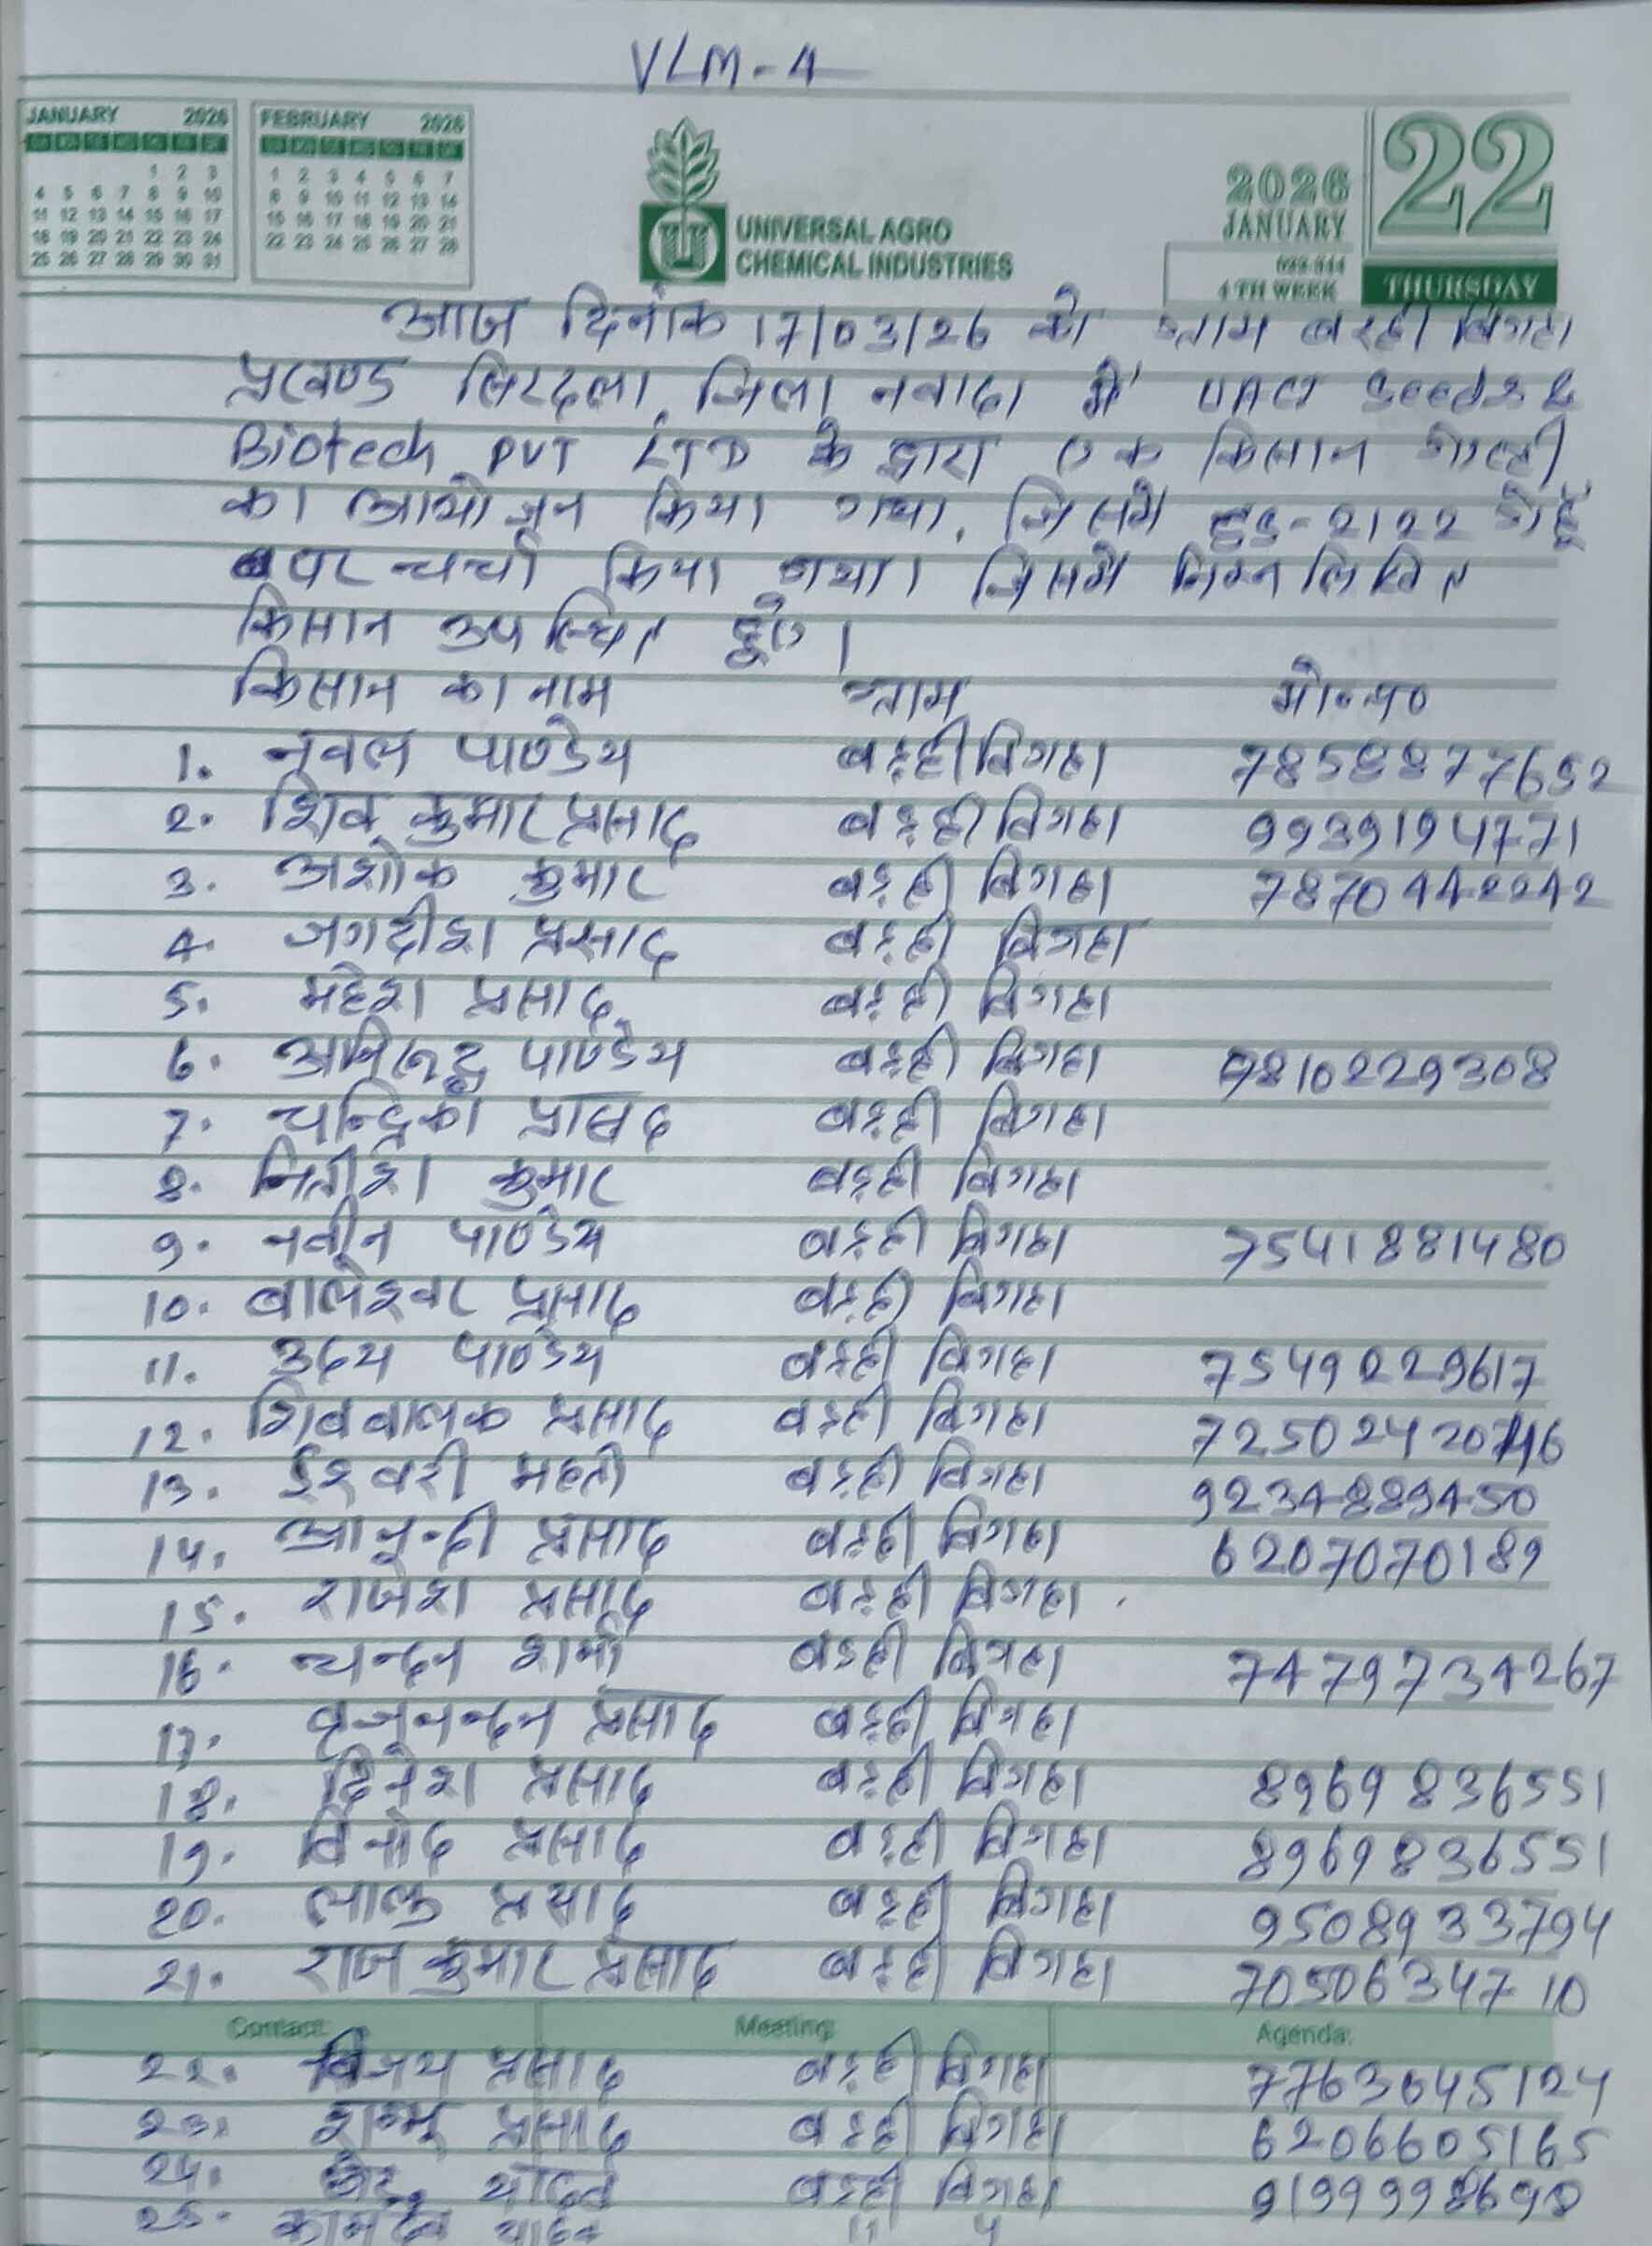 VLM-4
JANUARY 2026
1 2 3
4 5 6 7 8 9 10
11 12 13 14 15 16 17
18 19 20 21 22 23 24
25 26 27 28 29 30 31
FEBRUARY 2026
1 2 3 4 5 6 7
8 9 10 11 12 13 14
15 16 17 18 19 20 21
22 23 24 25 26 27 28
UNIVERSAL AGRO
CHEMICAL INDUSTRIES
2026
JANUARY
22
022-344
4 TH WEEK
THURSDAY
आज दिनांक 17/03/26 को ग्राम बरही बिगहा
प्रखण्ड सिरदला, जिला नवादा में UACI Seeds &
Biotech PVT LTD के द्वारा एक किसान गोष्ठी
का आयोजन किया गया, जिसमें 55-2122 गेहूँ
पर चर्चा किया गया। जिसमें निम्नलिखित
किसान उपस्थित हुए।
किसान का नाम ग्राम मो॰न॰
1. नवल पाण्डेय बड़ही बिगहा 7858877652
2. शिव कुमार प्रसाद बड़ही बिगहा 9939194771
3. अशोक कुमार बड़ही बिगहा 7870442242
4. जगदीश प्रसाद बड़ही बिगहा
5. महेश प्रसाद बड़ही बिगहा
6. अनिरूद्ध पाण्डेय बड़ही बिगहा 9810229308
7. चन्द्रिका प्रासद बड़ही बिगहा
8. नितीश कुमार बड़ही बिगहा
9. नवीन पाण्डेय बड़ही बिगहा 7541881480
10. बालेश्वर प्रसाद बड़ही बिगहा
11. उदय पाण्डेय बड़ही बिगहा 7549229617
12. शिवबालक प्रसाद बड़ही बिगहा
13. ईश्वरी महतो बड़ही बिगहा 9234889450
14. आनन्दी प्रसाद बड़ही बिगहा 6207070189
15. राजेश प्रसाद बड़ही बिगहा
16. चन्दन शर्मा बड़ही बिगहा 7479734267
17. वृजनन्दन प्रसाद बड़ही बिगहा
18. दिनेश प्रसाद बड़ही बिगहा 8969836551
19. विनोद प्रसाद बड़ही बिगहा 8969836551
20. लालु प्रसाद बड़ही बिगहा 9508933794
21. राज कुमार प्रसाद बड़ही बिगहा 7050634710
Contact: Meeting: Agenda:
22. विजय प्रसाद बड़ही बिगहा 7763645124
23. शम्भू प्रसाद बड़ही बिगहा 6206605165
24. यादव बड़ही बिगहा 9199998698
25. कामदेव यादव 11 4